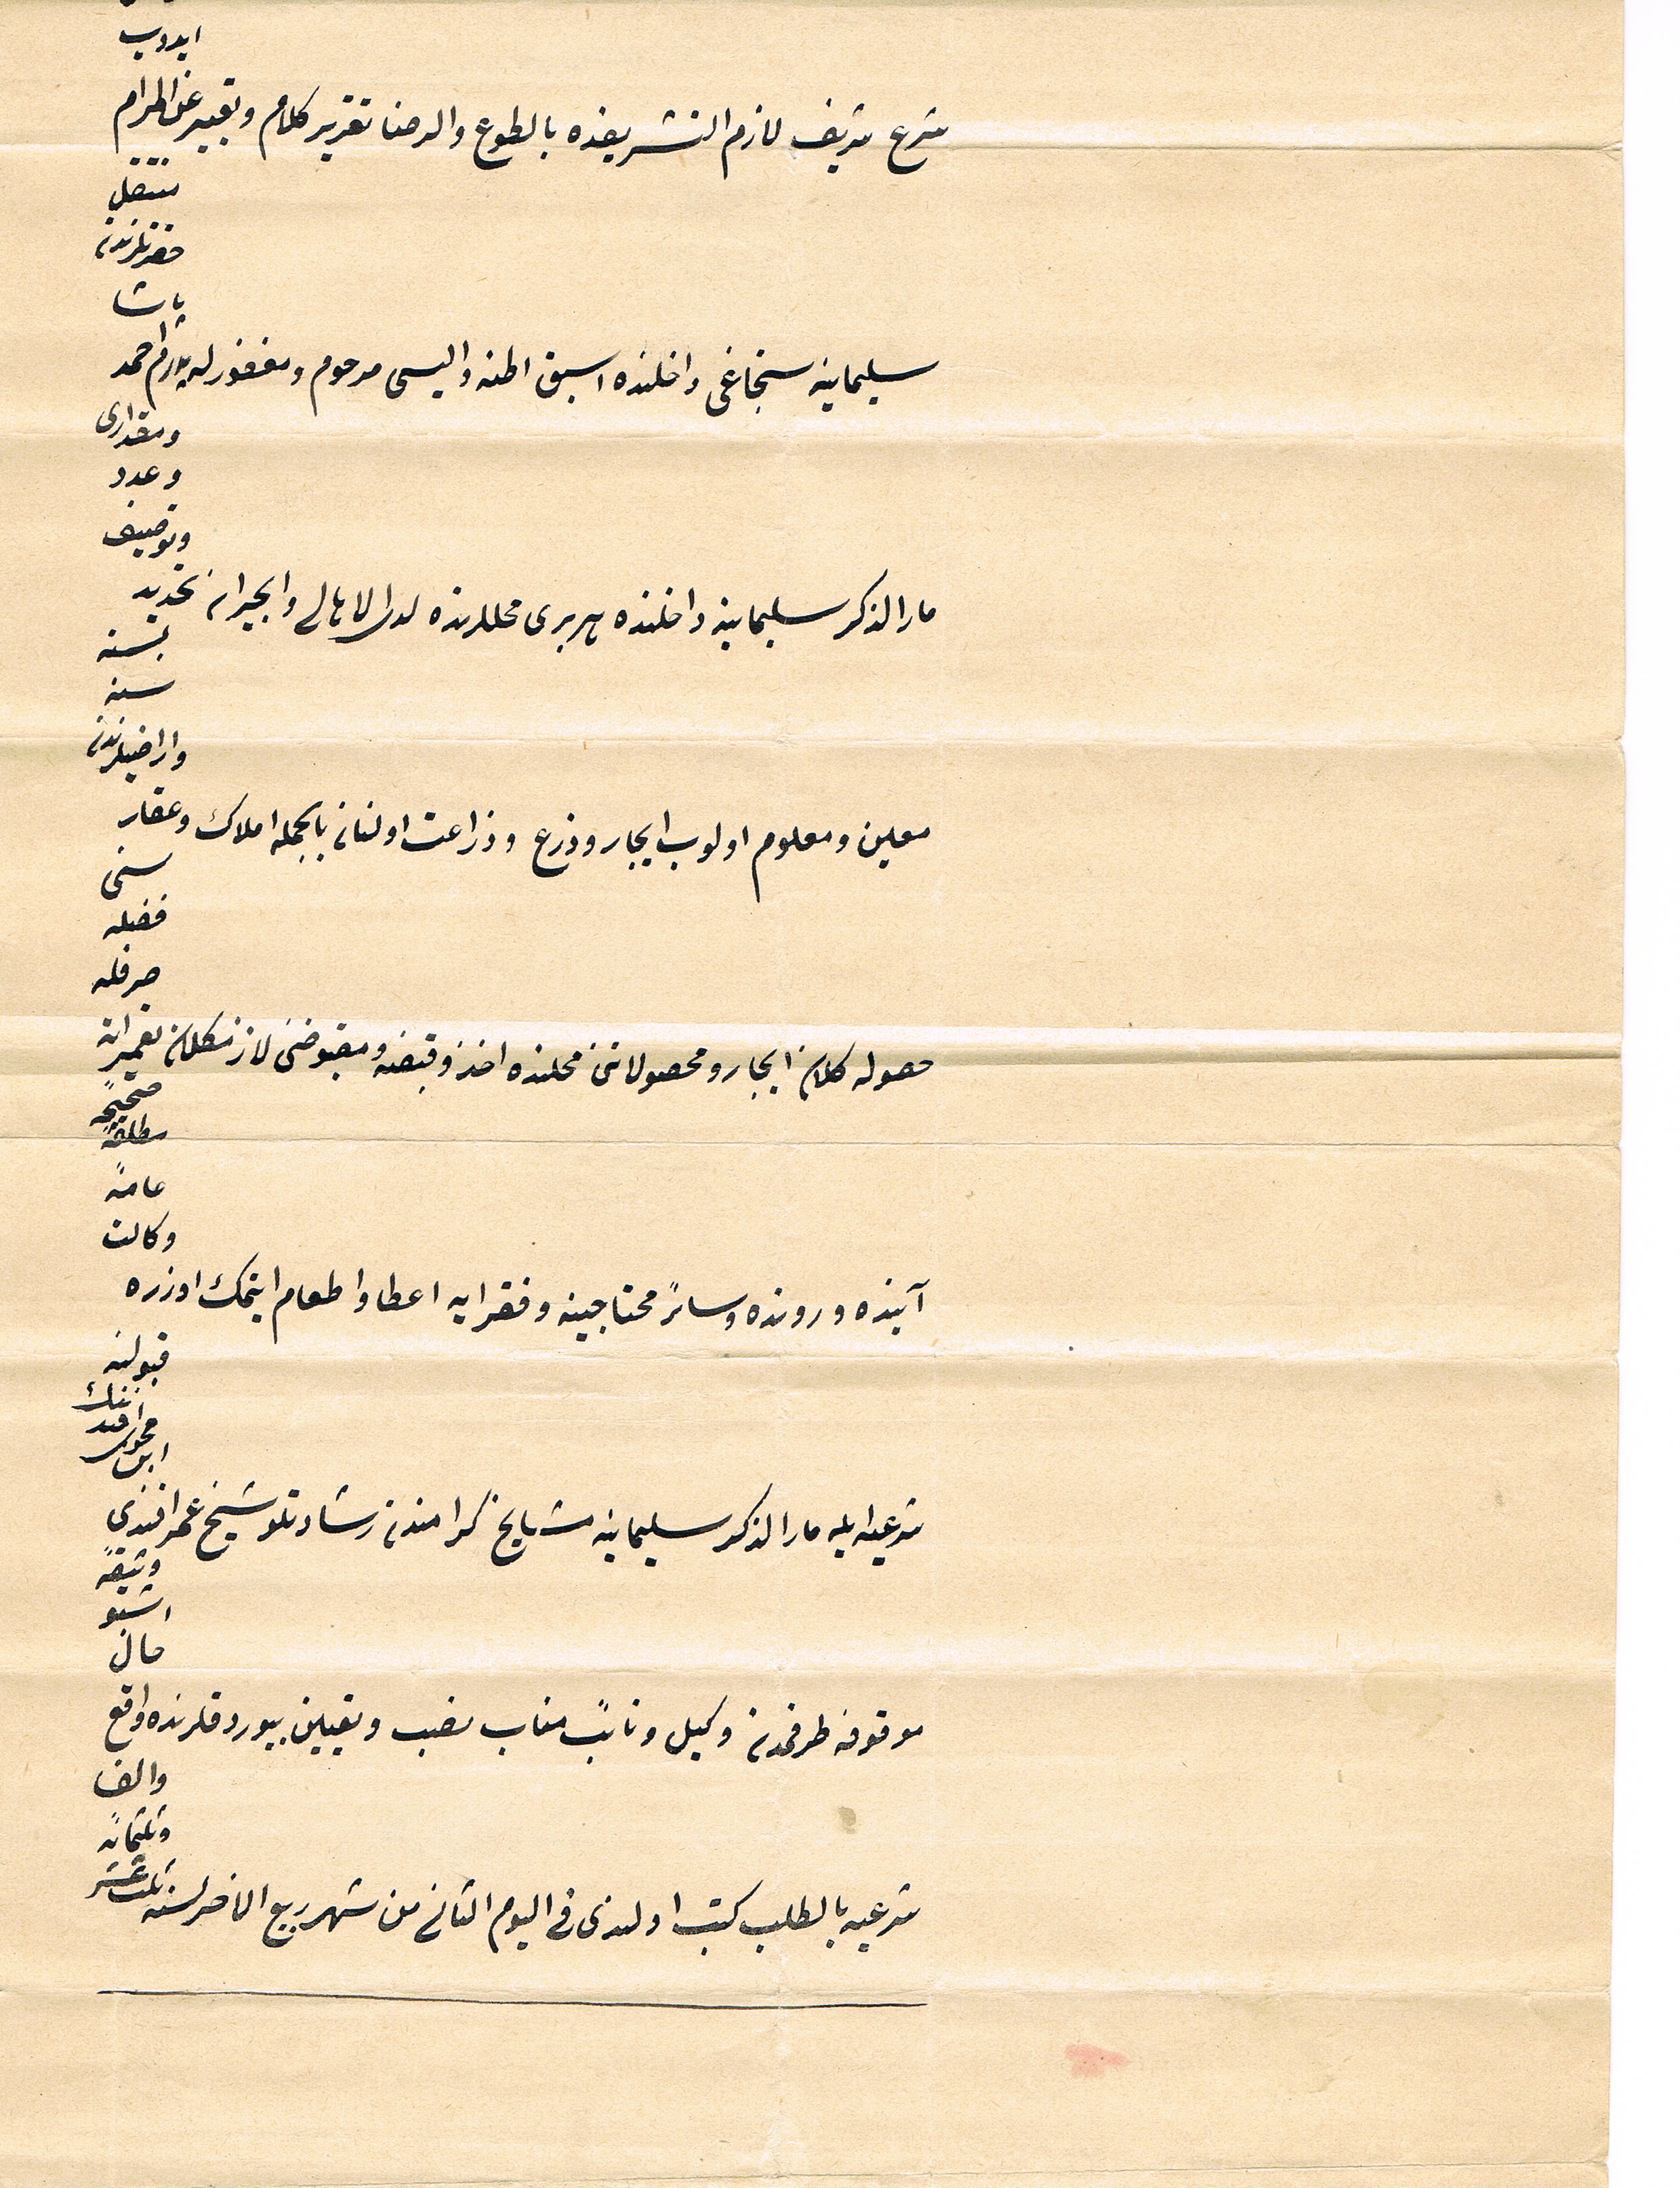 ايدوب
شرع شريف لازم التشريفده بالطوع والرضا تقرير كلام وتعبير عن المرام
منتقل
حضرتلرندن
پاشا
سليمانيه سنجاغى داخلنده اسبق اطنه واليسى مرحوم ومغفور له پدرم احمد
ومقدارى
وعدد
وتوصيف
مار الذكر سليمانيه داخلنده هر برى محللرنده لدى الاهالى والجيران تحديد
بسنه
سنه
واراضيلرندن
معين ومعلوم اولوب ايجار وزرع وزراعت اولنان بالجمله املاك وعقار
سنى
فضله
صرفله
حصوله كلان ايجار ومحصولاتنى محلنده اخذ وقبضه ومقبوضنى لازمكلان تعميراته
صحيحةً
مطلقةً
عامةً
وكالت
آينده ورونده وسائر محتاجينه وفقرايه اعطا واطعام ايتمك اوزره
قبولنه
افندينك
محوى
ابن
شرعيه ايله مار الذكر سليمانيه مشايخ كرامندن رشادتلو شيخ عمر افندى
وثيقهٔ
اشبو
حالى
موقوفه طرفمدن وكيل ونائب مناب نصب وتعيين بيوردقلرنده واقع
والف
وثلثمائه
ثلث عشر
شرعيه بالطلب كتب اولندى فى اليوم الثانى من شهر ربيع الاخر لسنه